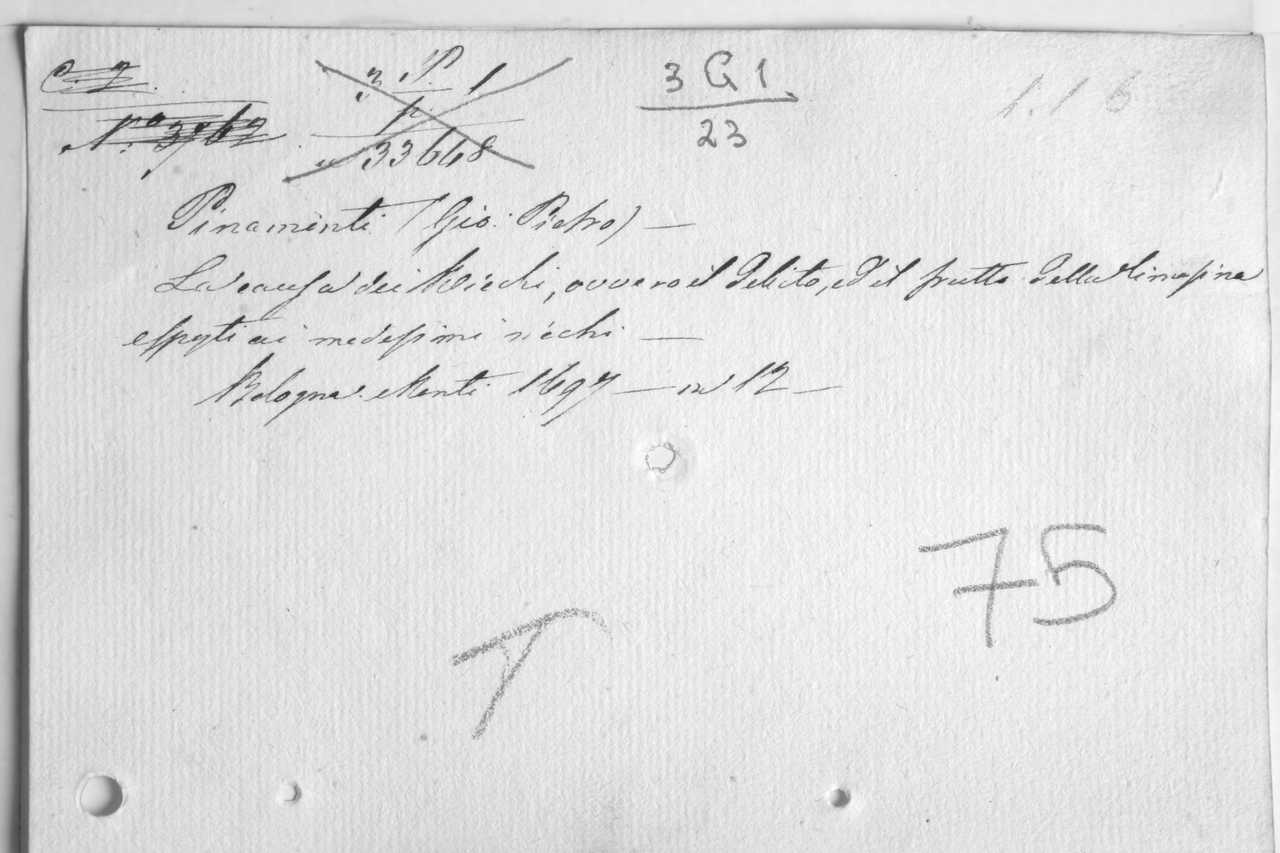 C. 7.
N.º 3762
3. P. 1
p.
33648
3 G 1
23
1.1 6
Pinamonti (Gio: Pietro) —
La causa dei Ricchi, ovvero il Debito, ed il frutto della limosina
esposti ai medesimi ricchi —
Bologna. Monti 1697 — in 12 —
75
T